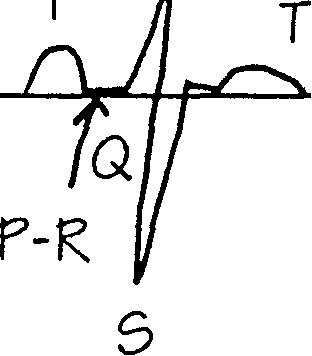 T
Q
P-R
S